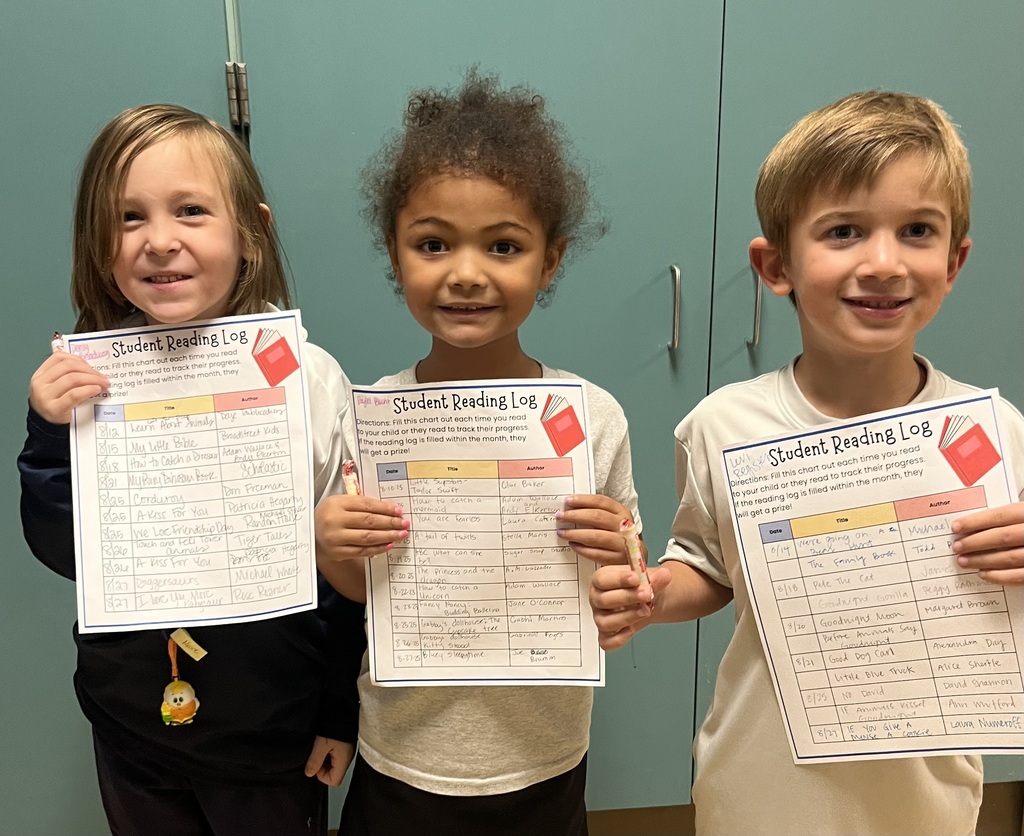 Student Reading Log
Directions: Fill this chart out each time you read
to your child or they read to track their progress.
If the reading log is filled within the month, they
get a prize!
Date Title Author
8/12 Learn About Animals
8/15 My Little Bible Broadstreet Kids
8/18 How to Catch a Adam Wallace &
Andy Elkerton
8/21 My Book Scholastic
8/25 Corduroy Don Freeman
8/25 A Kiss For You Patricia Hegarty
8/25 We Love Friendship Day
8/26 Touch and Feel Tower Tiger Tales
Animals
8/26 A Kiss For You Patricia Hegarty
8/27 Roarrrsaurs Michael
8/27 I Love You More Rose Rossner
Student Reading Log
Directions: Fill this chart out each time you read
to your child or they read to track their progress.
If the reading log is filled within the month, they
will get a prize!
Date Title Author
8-10-25 Little
Taylor Swift
How to catch a Adam Wallace and
mermaid Andy Elkerton
You are fearless Laura
A tail of twirls Stella Maris
8-20-25 The Princess and the
dragon
8-22-25 How to catch a Adam Wallace
Unicorn
Fancy Nancy: Jane O'Connor
Budding Ballerina
8-25-25 Gabby's dollhouse: The Gabhi Martins
Cupcake tree
8-26-25 Gabbys dollhouse Gabrielle Reyes
8-27-25 Bluey Sleepytime Joe
Brumm
Student Reading Log
Directions: Fill this chart out each time you read
to your child or they read to track their progress.
If the reading log is filled within the month, they
will get a prize!
Date Title Author
8/14 We're going on a Michael
The Family Book Todd
8/18 Pete The Cat
Goodnight Gorilla Peggy
8/20 Goodnight Moon Margaret Brown
Before Animals Say
Goodnight
8/21 Good Dog Carl Alexandra Day
Little Blue Truck Alice Shertle
8/25 No David David Shannon
If Animals Kissed Ann Whitford
Goodnight
8/27 IF YOU GIVE A Laura Numeroff
MOUSE A COOKIE